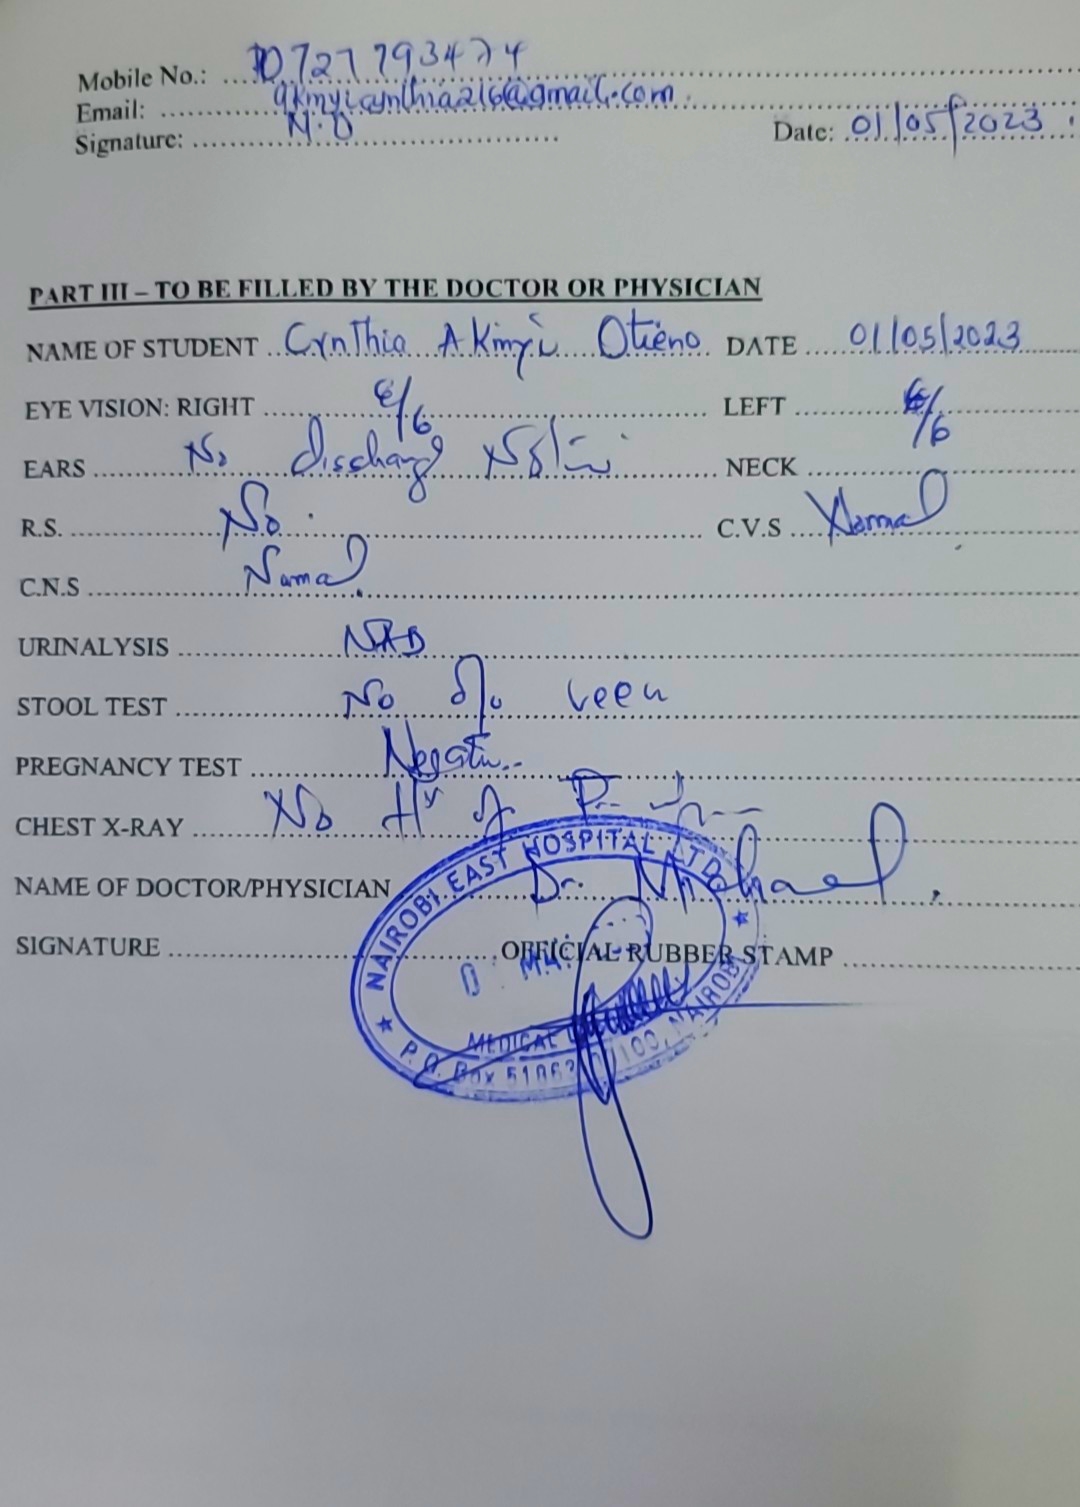 Mobile No.: 0727793474
Email: akmyicynthia216@gmail.com
Signature: N.O Date: 01/05/2023
PART III – TO BE FILLED BY THE DOCTOR OR PHYSICIAN
NAME OF STUDENT Cynthia Akinyi Otieno DATE 01/05/2023
EYE VISION: RIGHT 6/6 LEFT 6/6
EARS No discharge NECK
R.S. No C.V.S Normal
C.N.S Normal
URINALYSIS NAD
STOOL TEST No seen
PREGNANCY TEST Negative
CHEST X-RAY No Hx of
NAME OF DOCTOR/PHYSICIAN Dr. Michael
SIGNATURE OFFICIAL RUBBER STAMP
NAIROBI EAST HOSPITAL LTD
MEDICAL
P.O. Box NAIROBI